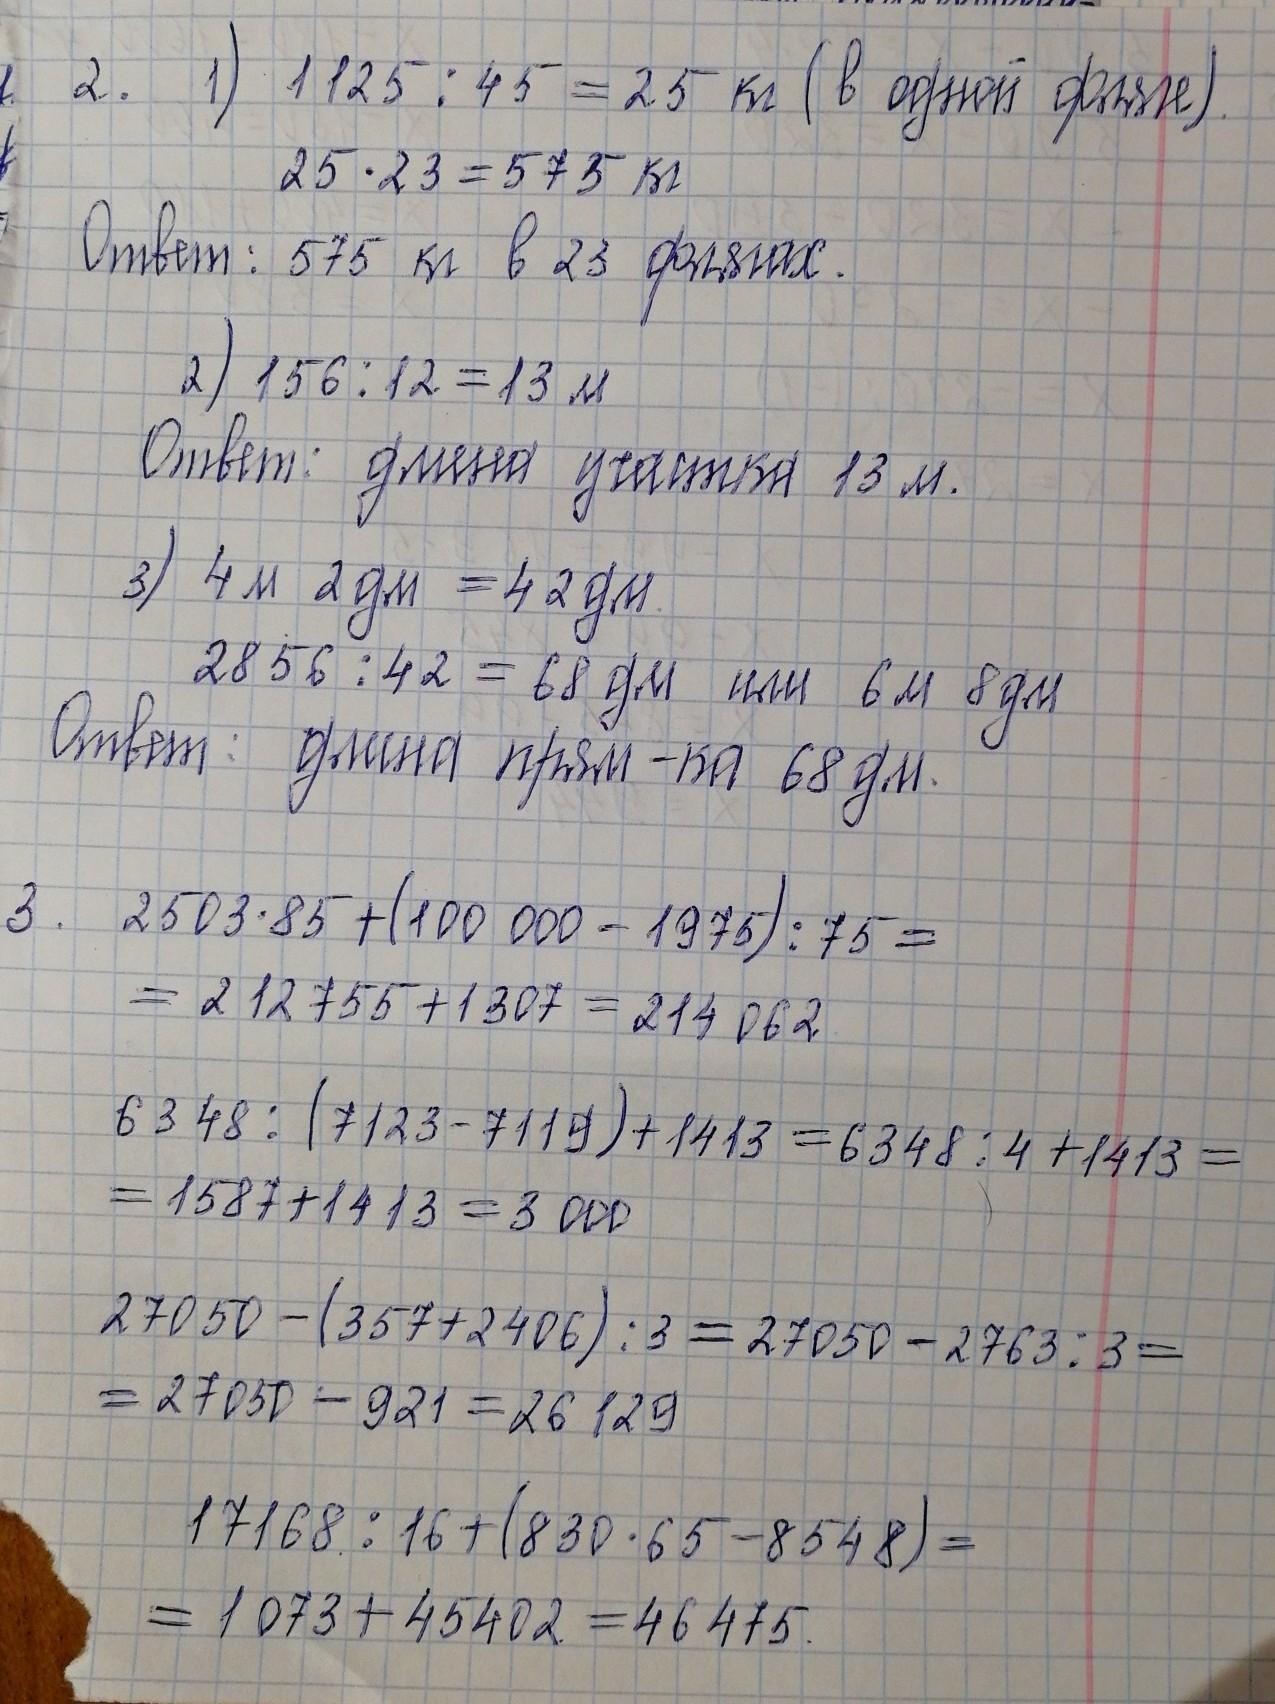 2. 1) 1125 : 45 = 25 кг (в одной фляге).
25 · 23 = 575 кг
Ответ: 575 кг в 23 флягах.
2) 156 : 12 = 13 м
Ответ: длина участка 13 м.
3) 4 м 2 дм = 42 дм
2856 : 42 = 68 дм или 6 м 8 дм
Ответ: длина прям-ка 68 дм.
3. 2503 · 85 + (100 000 - 1975) : 75 =
= 212755 + 1307 = 214 062
6348 : (7123 - 7119) + 1413 = 6348 : 4 + 1413 =
= 1587 + 1413 = 3 000
27050 - (357 + 2406) : 3 = 27050 - 2763 : 3 =
= 27050 - 921 = 26 129
17168 : 16 + (830 · 65 - 8548) =
= 1073 + 45402 = 46 475.